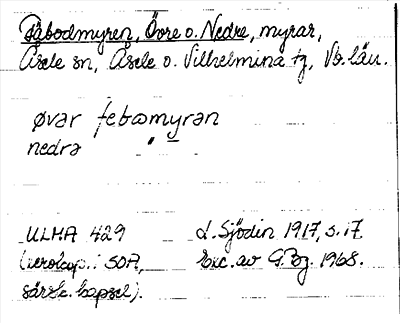 Fäbodmyren, Övre o. Nedre, myrar,
Åsele sn, Åsele o. Vilhelmina tg, Vb. län.
øvar febomyran
nedra " —
ULMA 429
(xerokop. i SOA,
särsk. kapsel).
L. Sjödin 1917, s. 17
Exc. av G. Bg. 1968.